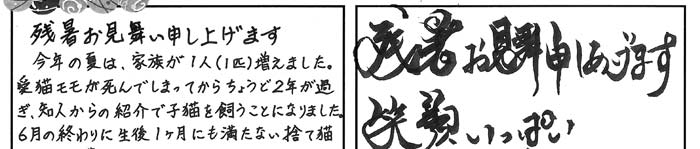 残暑お見舞い申し上げます
今年の夏は、家族が1人(1匹)増えました。
愛猫モモが死んでしまってからちょうど2年が過
ぎ、知人からの紹介で子猫を飼うことになりました。
6月の終わりに生後1ヶ月にも満たない捨て猫
残暑お見舞申しあげます
笑顔いっぱい